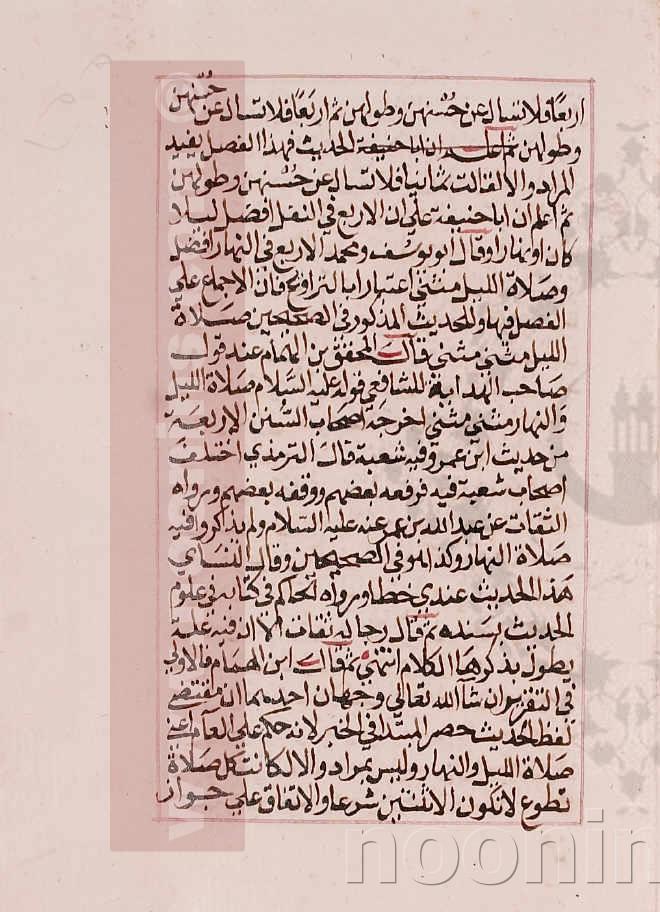 اربعا فلا تسال عن حسنهن وطولهن ثم اربعا فلا تسال عن حسنهن
وطولهن ثم علم ان ابا حنيفة الحديث فهذا الفصل يفيد
المراد والا لقالت ثمانيا فلا تسال عن حسنهن وطولهن
ثم اعلم ان ابا حنيفة علي ان الاربع في النفل افضل ليلا
كان او نهارا وقال ابو يوسف ومحمد الاربع في النهار افضل
وصلاة الليل مثني اعتبارا بالتراويح فان الاجماع علي
الفصل فيها وللحديث المذكور في الصحيحين صلاة
الليل مثني مثني قال المحقق بن الهمام عند قول
صاحب الهداية للشافعي قوله عليه السلام صلاة الليل
والنهار مثني مثني اخرجه اصحاب السنن الاربعة
من حديث ابن عمر وفيه شعبة قال الترمذي اختلف
اصحاب شعبة فيه فرفعه بعضهم ووقفه بعضهم ورواه
الثقات عن عبد الله بن عمر عنه عليه السلام ولم يذكروا فيه
صلاة النهار وكذا هو في الصحيحين وقال النساي
هذا الحديث عندي خطا ورواه الحاكم في كتابه في علوم
الحديث بسنده ثم قال رجاله ثقات الا ان فيه علة
يطول بذكرها الكلام انتهي ثم قال ابن الهمام فالاولي
في التقرير ان شا الله تعالي وجهان احدهما ان مقتضي
لفظ الحديث حصر المبتدا في الخبر لانه حكم علي العام اعني
صلاة الليل والنهار وليس بمراد والا لكانت كل صلاة
تطوع لا تكون الا ثنتين شرعا والاتفاق علي جواز
noonin